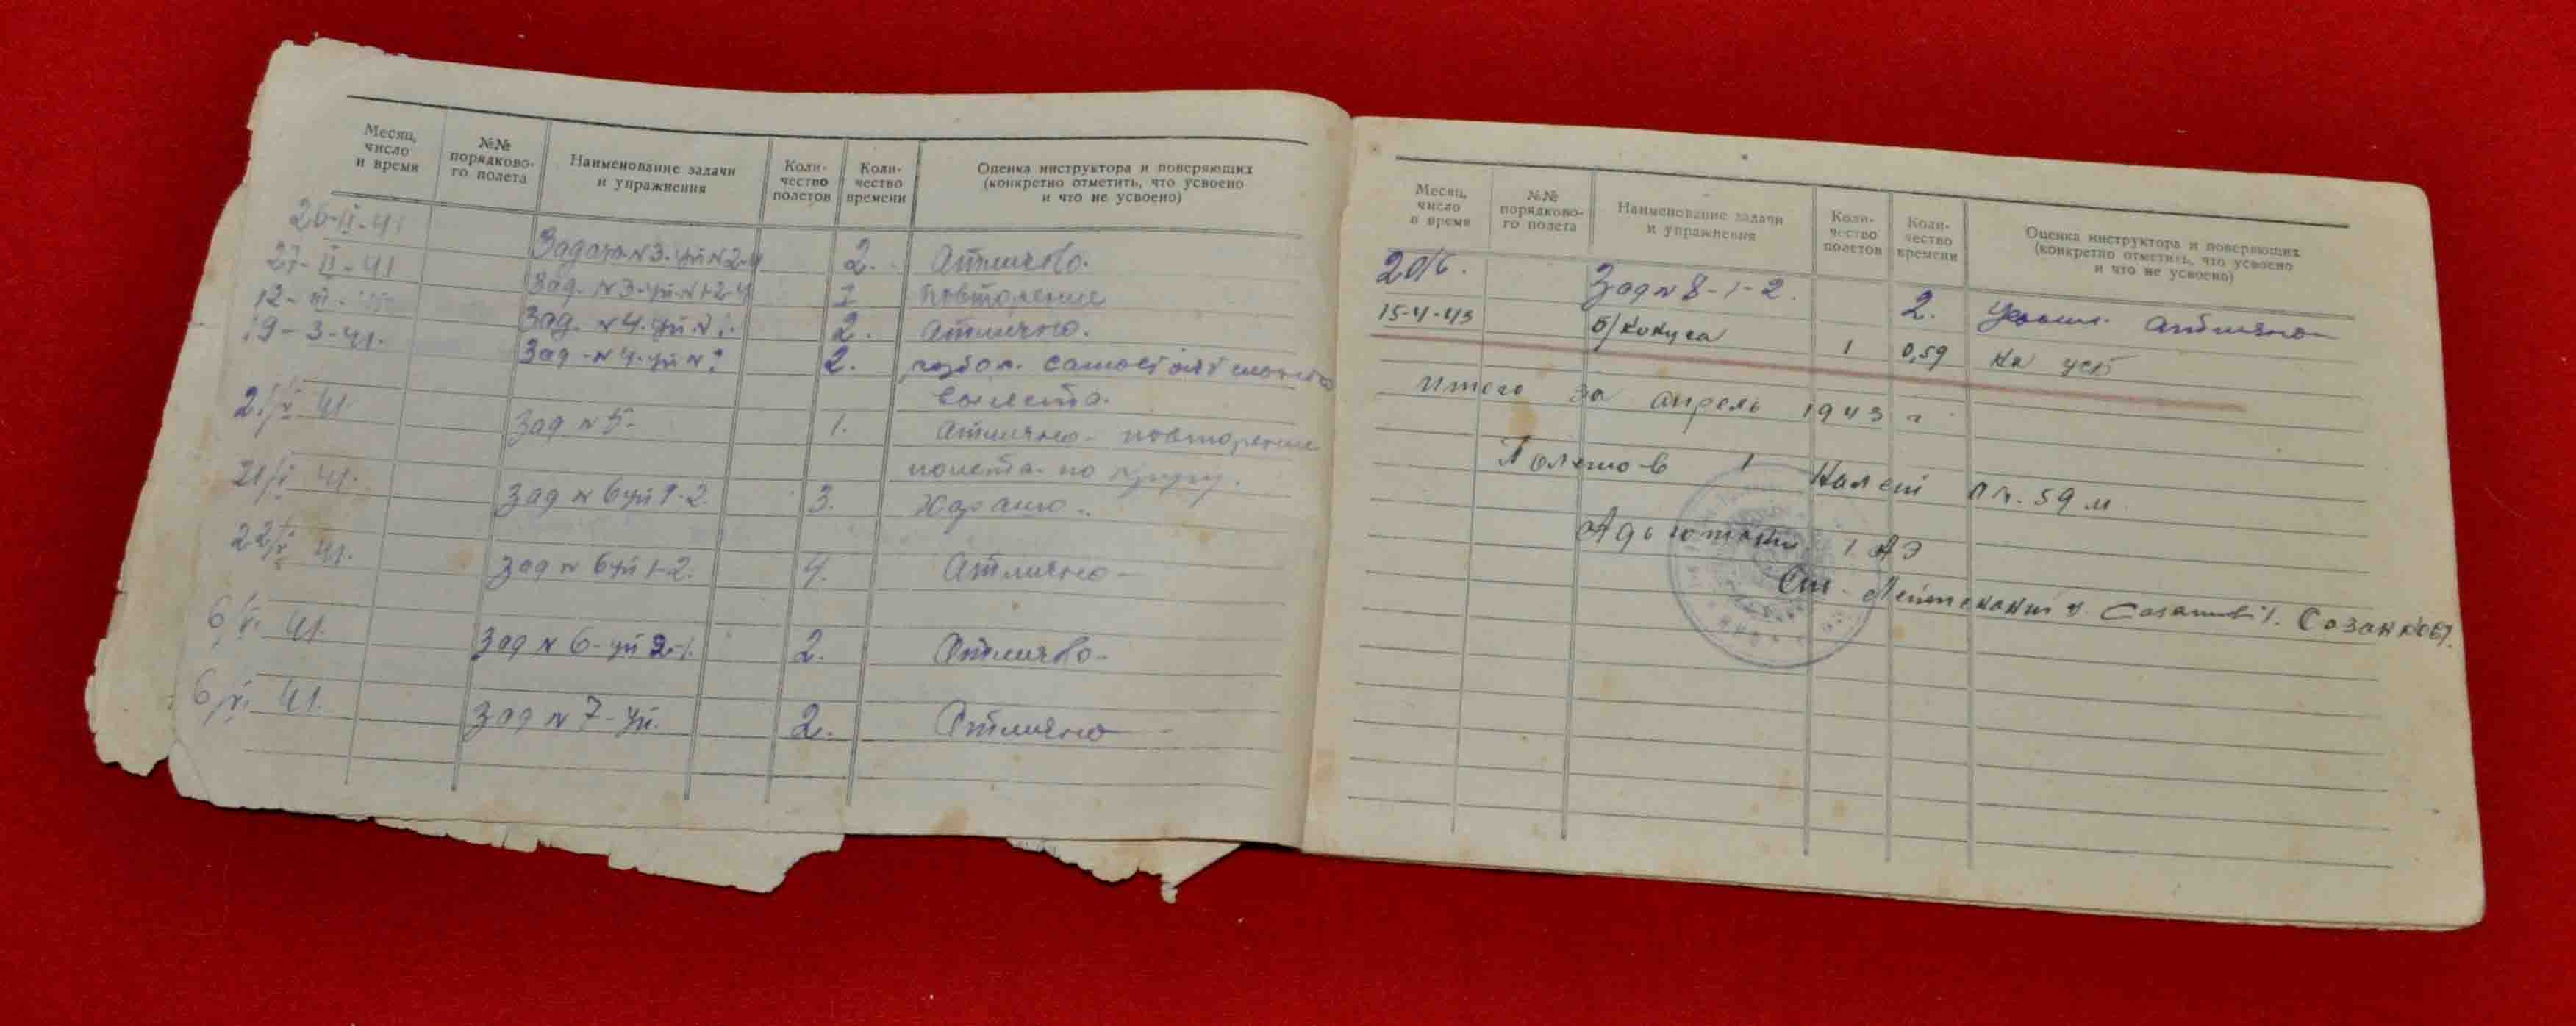 Месяц, число и время
№№ порядково-го полета
Наименование задачи и упражнения
Коли-чество полетов
Коли-чество времени
Оценка инструктора и поверяющих (конкретно отметить, что усвоено и что не усвоено)
26-II-41 Задача №3-уп №2-4 2. Отлично.
27-II-41 Зад. №3-уп-№1-2-4 1 повторение
12-III- Зад. №4-уп-№1. 2. отлично.
19-3-41. Зад-№4-уп-№ 2. самостоят
вылета.
41. Зад №5- 1. Отлично- повторение
полета-по кругу.
21/V 41. Зад №6 уп 1-2. 3. Хорошо.
22/V 41. Зад №6 уп 1-2. 4. Отлично-
6/V. 41. Зад №6-уп 2-1. 2. Отлично-
6/V. 41. Зад №7-уп. 2. Отлично
Месяц, число и время
№№ порядково-го полета
Наименование задачи и упражнения
Коли-чество полетов
Коли-чество времени
Оценка инструктора и поверяющих (конкретно отметить, что усвоено и что не усвоено)
20/6. Зад №8-1-2. 2. отлично
15-4-43 б/конуса 1 0,59 На уст
Итого за апрель 1943 г
Полетов 1 Налет 0 ч. 59 м
Адъютант 1 АЭ
Ст. Лейтенант Созанков.